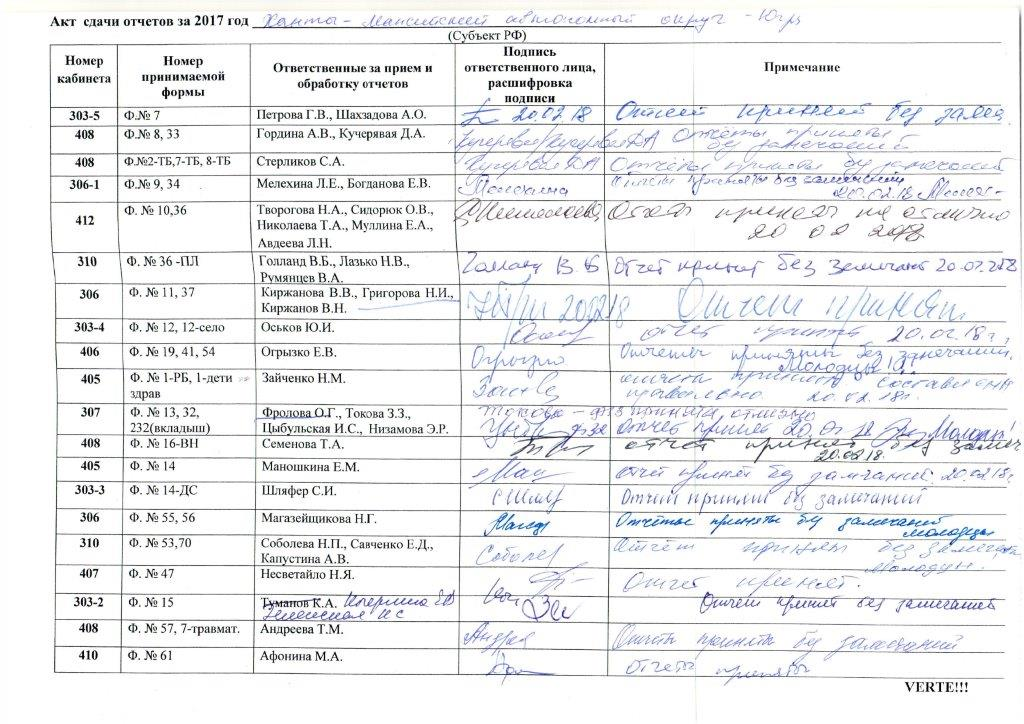 Акт сдачи отчетов за 2017 год Ханты-Мансийский автономный округ - Югра
(Субъект РФ)
Номер кабинета Номер принимаемой формы Ответственные за прием и обработку отчетов Подпись ответственного лица, расшифровка подписи Примечание
303-5 Ф.№ 7 Петрова Г.В., Шахзадова А.О. 20.02.18 Отчет принят без замеч.
408 Ф.№ 8, 33 Гордина А.В., Кучерявая Д.А. Кучерявая ДА Отчёты приняты без замечаний
408 Ф.№2-ТБ,7-ТБ, 8-ТБ Стерликов С.А. Кучерявая ДА Отчёты приняты без замечаний
306-1 Ф.№ 9, 34 Мелехина Л.Е., Богданова Е.В. Мелехина Отчеты приняты без замечаний 20.02.18
412 Ф. № 10,36 Творогова Н.А., Сидорюк О.В., Николаева Т.А., Муллина Е.А., Авдеева Л.Н. Отчеты приняты на отлично 20 02 2018
310 Ф. № 36 -ПЛ Голланд В.Б., Лазько Н.В., Румянцев В.А. Голланд В.Б Отчет принят без замечаний 20.02.2018
306 Ф. № 11, 37 Киржанова В.В., Григорова Н.И., Киржанов В.Н. 200218 Отчет принят
303-4 Ф. № 12, 12-село Оськов Ю.И. отчет принят 20.02.18г.
406 Ф. № 19, 41, 54 Огрызко Е.В. Огрызко Отчеты приняты без замечаний. Молодцы!!!
405 Ф. № 1-РБ, 1-дети здрав Зайченко Н.М. отчеты приняты, составлены правильно 20.02.18г.
307 Ф. № 13, 32, 232(вкладыш) Фролова О.Г., Токова З.З., Цыбульская И.С., Низамова Э.Р. Токова принята, отлично Отчет принят 20.02.18 Молодцы!
408 Ф. № 16-ВН Семенова Т.А. отчет принят без замеч 20.02.18.
405 Ф. № 14 Маношкина Е.М. Ман отчет принят без замечаний. 20.02.18г.
303-3 Ф. № 14-ДС Шляфер С.И. Отчет принят без замечаний
306 Ф. № 55, 56 Магазейщикова Н.Г. Отчёты приняты без замечаний молодцы
310 Ф. № 53,70 Соболева Н.П., Савченко Е.Д., Капустина А.В. Соболев Отчёт принят без замечан. Молодцы.
407 Ф. № 47 Несветайло Н.Я. Отчет принят.
303-2 Ф. № 15 Туманов К.А. Отчет принят без замечаний
408 Ф. № 57, 7-травмат. Андреева Т.М. Андре Отчёты приняты без замечаний
410 Ф. № 61 Афонина М.А. Отчеты приняты
VERTE!!!